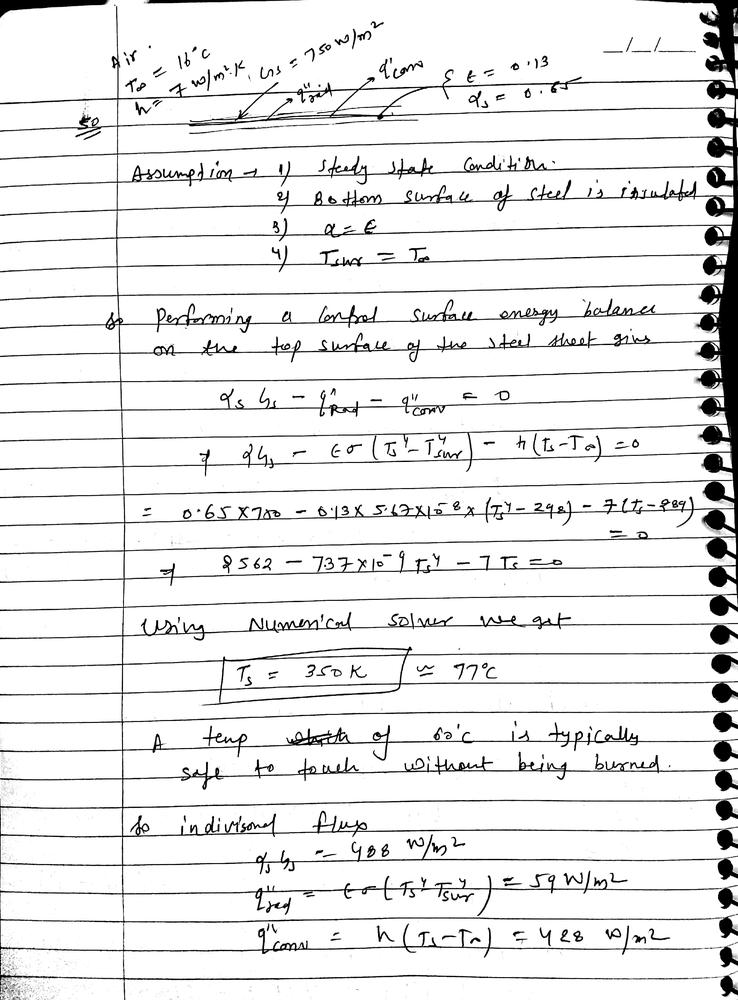 Air.
T∞ = 16°C
h = 7 W/m².K, Gs = 750 W/m²
q''rad
q''conv
{ ε = 0.13
αs = 0.65
__/__/__
50
Assumption → 1) Steady state condition.
2) Bottom surface of steel is insulated
3) α = ε
4) Tsur = T∞
So Performing a control surface energy balance
on the top surface of the steel sheet gives
αs Gs - q''Rad - q''conv = 0
⇒ αGs - εσ (Ts⁴ - T⁴sur) - h (Ts - T∞) = 0
= 0.65 × 750 - 0.13 × 5.67×10⁻⁸ × (Ts⁴ - 298) - 7 (Ts - 289)
= 0
⇒ 2562 - 737×10⁻⁹ Ts⁴ - 7 Ts = 0
Using Numerical solver we get
Ts = 350 K ≃ 77°C
A temp of 60°C is typically
safe to touch without being burned.
So indivisonal flux
αs Gs = 488 W/m²
q''rad = εσ (Ts⁴ - T⁴sur) = 59 W/m²
q''conv = h (Ts - T∞) = 428 W/m²